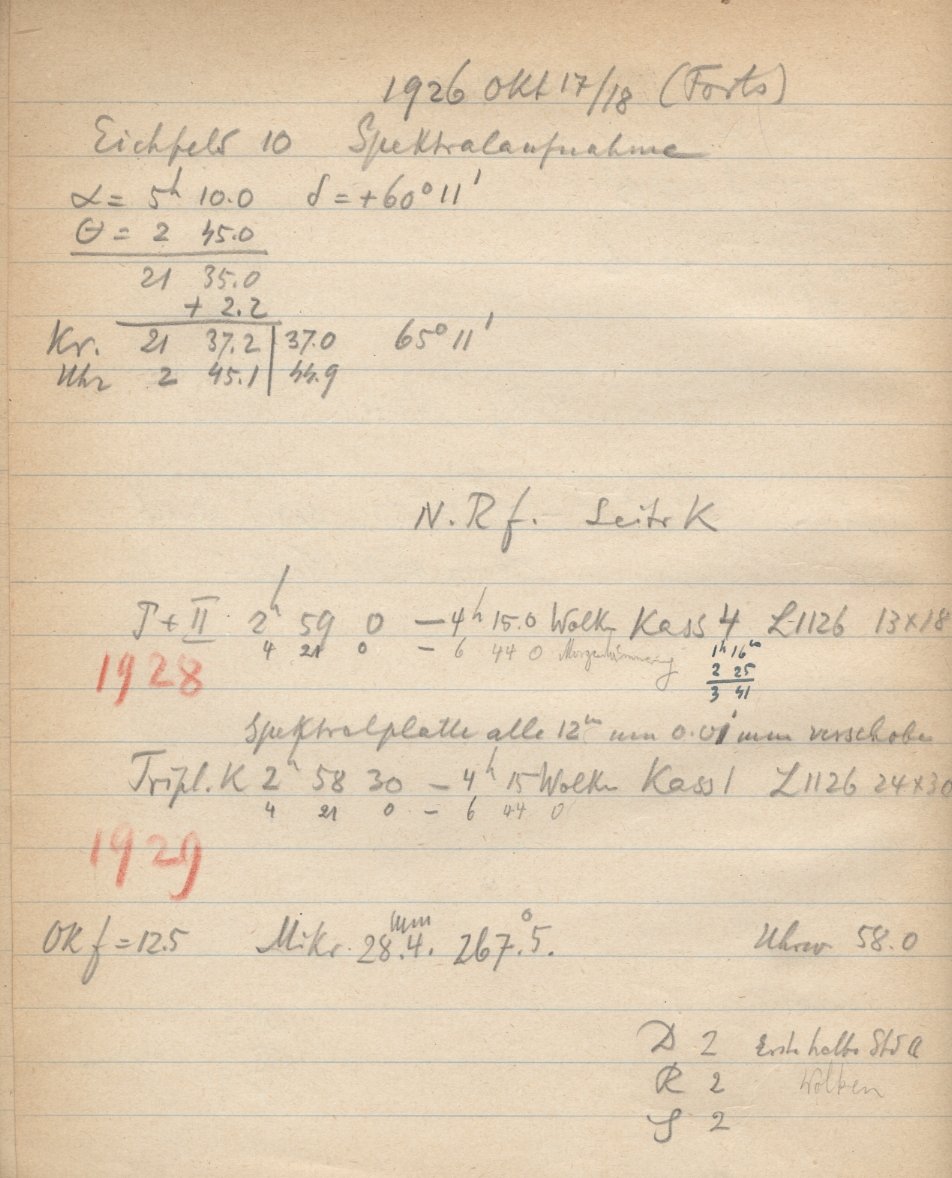 1926 Okt 17/18 (Forts)
Eichfeld 10 Spektralaufnahme
α = 5h 10.0 δ = +60° 11'
Θ = 2 45.0
21 35.0
+ 2.2
Kr. 21 37.2 | 37.0 65° 11'
Uhr 2 45.1 | 44.9
N.R f. Leitr K
T + II 2h 59 0 – 4h 15.0 Wolken Kass 4 L1126 13×18
4 21 0 – 6 44 0 Morgendämmerung
1h 16m
2 25
3 41
1928
Spektralplatte alle 12m um 0.01 mm verschoben
Tripl. K 2h 58 30 – 4h 15 Wolken Kass 1 L1126 24×30
4 21 0 – 6 44 0
1929
OK f = 12.5 Mikr. 28.4.mm 267.°5. Uhrw 58.0
D 2 Erste halbe Std a
R 2 Wolken
S 2